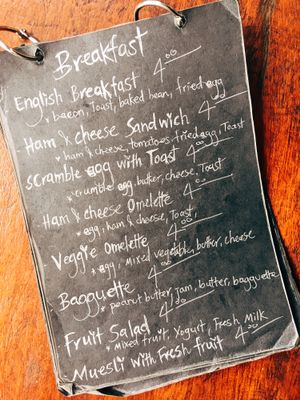 Breakfast
English Breakfast 4.00
* bacon, toast, baked bean, fried egg
Ham & cheese Sandwich 4.00
* ham & cheese, tomatoes, fried egg, Toast
scramble egg with Toast 4.00
* scrumble egg, butter, cheese, Toast
Ham & cheese Omelette 4.00
* egg, ham & cheese, Toast,
Veggie Omelette 4.00
* egg, mixed vegetable, butter, cheese
Bagguette 4.00
* peanut butter, jam, butter, bagguette
Fruit Salad
* Mixed fruit, Yogurt, Fresh Milk
Muesli with Fresh fruit 4.00